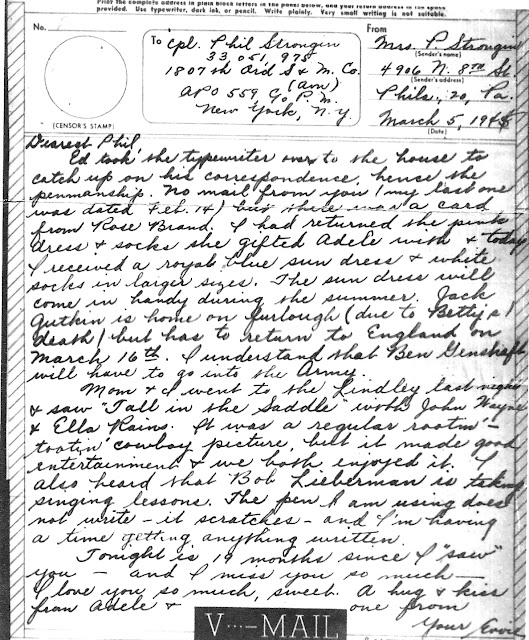 Print the complete address in plain block letters in the panel below, and your return address in the space
provided. Use typewriter, dark ink, or pencil. Write plainly. Very small writing is not suitable.
No.
(CENSOR'S STAMP)
To Cpl. Phil Strongin
33,051,975
1807th Ord S & M. Co.
(Avn)
APO 559 c/o P.M.
New York, N.Y.
From
Mrs. P. Strongin
(Sender's name)
4906 N. 8th St.
(Sender's address)
Phila., 20, Pa.
March 5, 1945
(Date)
Dearest Phil,
Ed took the typewriter over to the house to
catch up on his correspondence, hence the
penmanship. No mail from you (my last one
was dated Feb. 14) but there was a card
from Rose Brand. I had returned the pink
dress & socks she gifted Adele with & today
I received a royal blue sun dress & white
socks in larger sizes. The sun dress will
come in handy during the summer. Jack
Gutkin is home on furlough (due to Betty's
death) but has to return to England on
March 16th. I understand that Ben Genshaft
will have to go into the Army.
Mom & I went to the Lindley last
& saw "Tall in the Saddle" with John Wayne
& Ella Rains. It was a regular rootin'-
tootin' cowboy picture, but it made good
entertainment & we both enjoyed it. I
also heard that Bob Lieberman is taking
singing lessons. The pen I am using does
not write - it scratches - and I'm having
a time getting anything written.
Tonight is 19 months since I "saw"
you - and I miss you so much -
I love you so much, sweet. A hug & kiss
from Adele & one from
Your Evvie
V···—MAIL